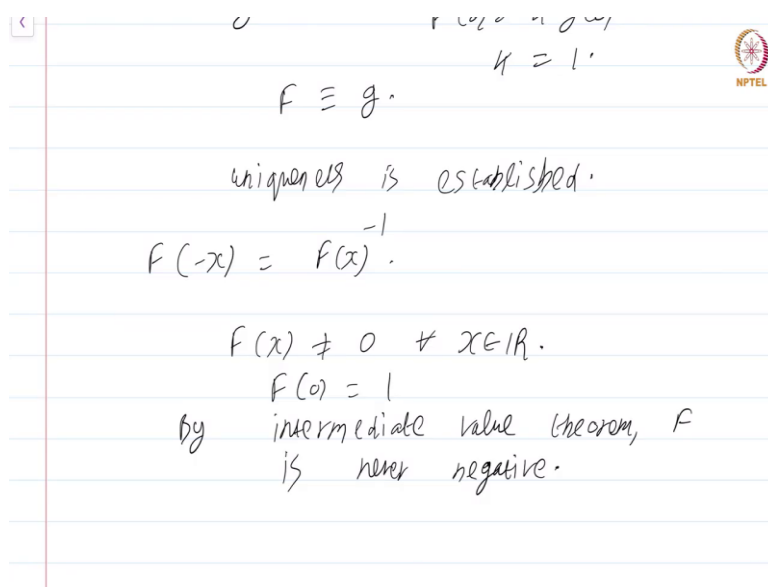 K = 1.
NPTEL
F ≡ g.
uniqueness is established.
F(-x) = F(x)⁻¹.
F(x) ≠ 0 ∀ x∈ℝ.
F(0) = 1
By intermediate value theorem, F
is never negative.